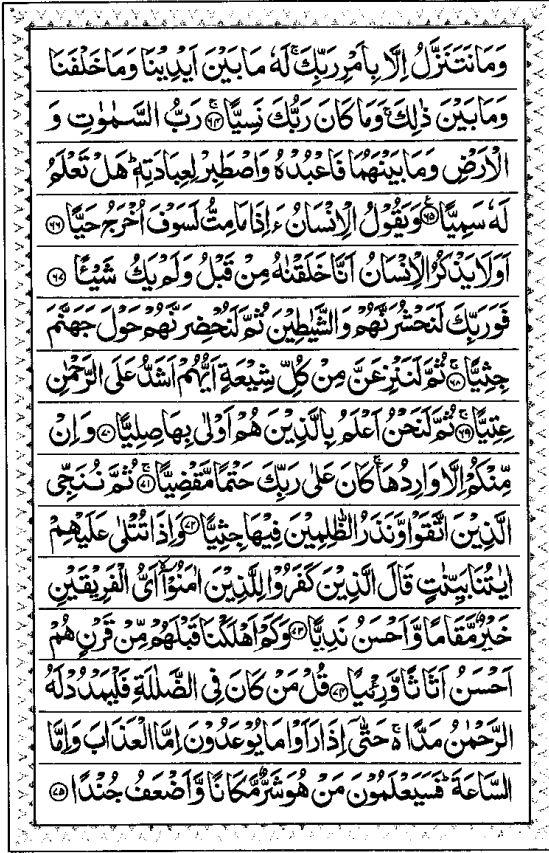 وَمَا نَتَنَزَّلُ اِلَّا بِاَمْرِ رَبِّكَ ۚ لَهٗ مَا بَيْنَ اَيْدِيْنَا وَمَا خَلْفَنَا
وَمَا بَيْنَ ذٰلِكَ ۚ وَمَا كَانَ رَبُّكَ نَسِيًّا ۚ ﴿۶۴﴾ رَبُّ السَّمٰوٰتِ وَ
الْاَرْضِ وَمَا بَيْنَهُمَا فَاعْبُدْهُ وَاصْطَبِرْ لِعِبَادَتِهٖ ؕ هَلْ تَعْلَمُ
لَهٗ سَمِيًّا ﴿۶۵﴾ وَيَقُوْلُ الْاِنْسَانُ ءَاِذَا مَا مِتُّ لَسَوْفَ اُخْرَجُ حَيًّا ﴿۶۶﴾
اَوَلَا يَذْكُرُ الْاِنْسَانُ اَنَّا خَلَقْنٰهُ مِنْ قَبْلُ وَلَمْ يَكُ شَيْـًٔا ﴿۶۷﴾
فَوَرَبِّكَ لَنَحْشُرَنَّهُمْ وَالشَّيٰطِيْنَ ثُمَّ لَنُحْضِرَنَّهُمْ حَوْلَ جَهَنَّمَ
جِثِيًّا ۚ ﴿۶۸﴾ ثُمَّ لَنَنْزِعَنَّ مِنْ كُلِّ شِيْعَةٍ اَيُّهُمْ اَشَدُّ عَلَى الرَّحْمٰنِ
عِتِيًّا ۚ ﴿۶۹﴾ ثُمَّ لَنَحْنُ اَعْلَمُ بِالَّذِيْنَ هُمْ اَوْلٰى بِهَا صِلِيًّا ﴿۷۰﴾ وَاِنْ
مِّنْكُمْ اِلَّا وَارِدُهَا ۚ كَانَ عَلٰى رَبِّكَ حَتْمًا مَّقْضِيًّا ۚ ﴿۷۱﴾ ثُمَّ نُنَجِّى
الَّذِيْنَ اتَّقَوْا وَّنَذَرُ الظّٰلِمِيْنَ فِيْهَا جِثِيًّا ﴿۷۲﴾ وَاِذَا تُتْلٰى عَلَيْهِمْ
اٰيٰتُنَا بَيِّنٰتٍ قَالَ الَّذِيْنَ كَفَرُوْا لِلَّذِيْنَ اٰمَنُوْۤا ۙ اَىُّ الْفَرِيْقَيْنِ
خَيْرٌ مَّقَامًا وَّاَحْسَنُ نَدِيًّا ﴿۷۳﴾ وَكَمْ اَهْلَكْنَا قَبْلَهُمْ مِّنْ قَرْنٍ هُمْ
اَحْسَنُ اَثَاثًا وَّرِءْيًا ﴿۷۴﴾ قُلْ مَنْ كَانَ فِى الضَّلٰلَةِ فَلْيَمْدُدْ لَهُ
الرَّحْمٰنُ مَدًّا ۚ۬ حَتّٰۤى اِذَا رَاَوْا مَا يُوْعَدُوْنَ اِمَّا الْعَذَابَ وَاِمَّا
السَّاعَةَ ؕ فَسَيَعْلَمُوْنَ مَنْ هُوَ شَرٌّ مَّكَانًا وَّاَضْعَفُ جُنْدًا ﴿۷۵﴾